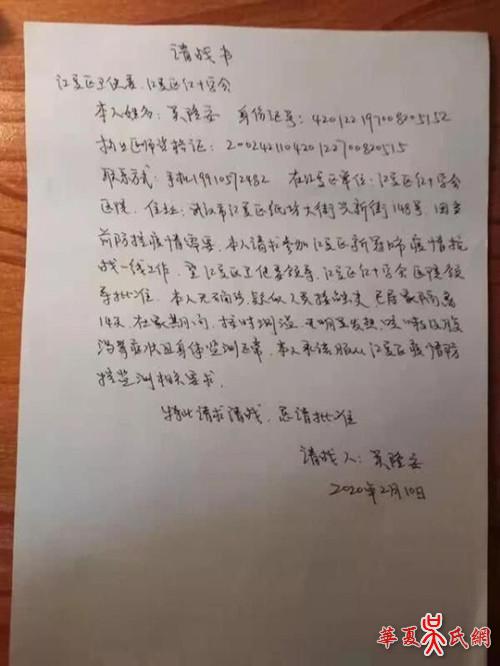 请战书
江夏区卫健委、江夏区红十字会
本人姓名：吴隆安 身份证号：420122197008205152
执业医师资格证：200242110420122700820515
联系方式：手机19910572482 在江夏单位：江夏区红十字会
医院，住址：武汉市江夏区纸坊大街兴新街148号，因当
前防控疫情需要，本人请求参加江夏区新冠肺疫情抗
战一线工作，望江夏区卫健委领导，江夏区红十字会医院领
导批准。本人无确诊，疑似人员接触史，已居家隔离
14天，在家期间，按时测温，无明显发热，咳嗽及腹
泻等症状且身体监测正常，本人承诺服从江夏区疫情防
控监测相关要求。
特此请求请战，恳请批准
请战人：吴隆安
2020年2月10日
華夏吴氏網